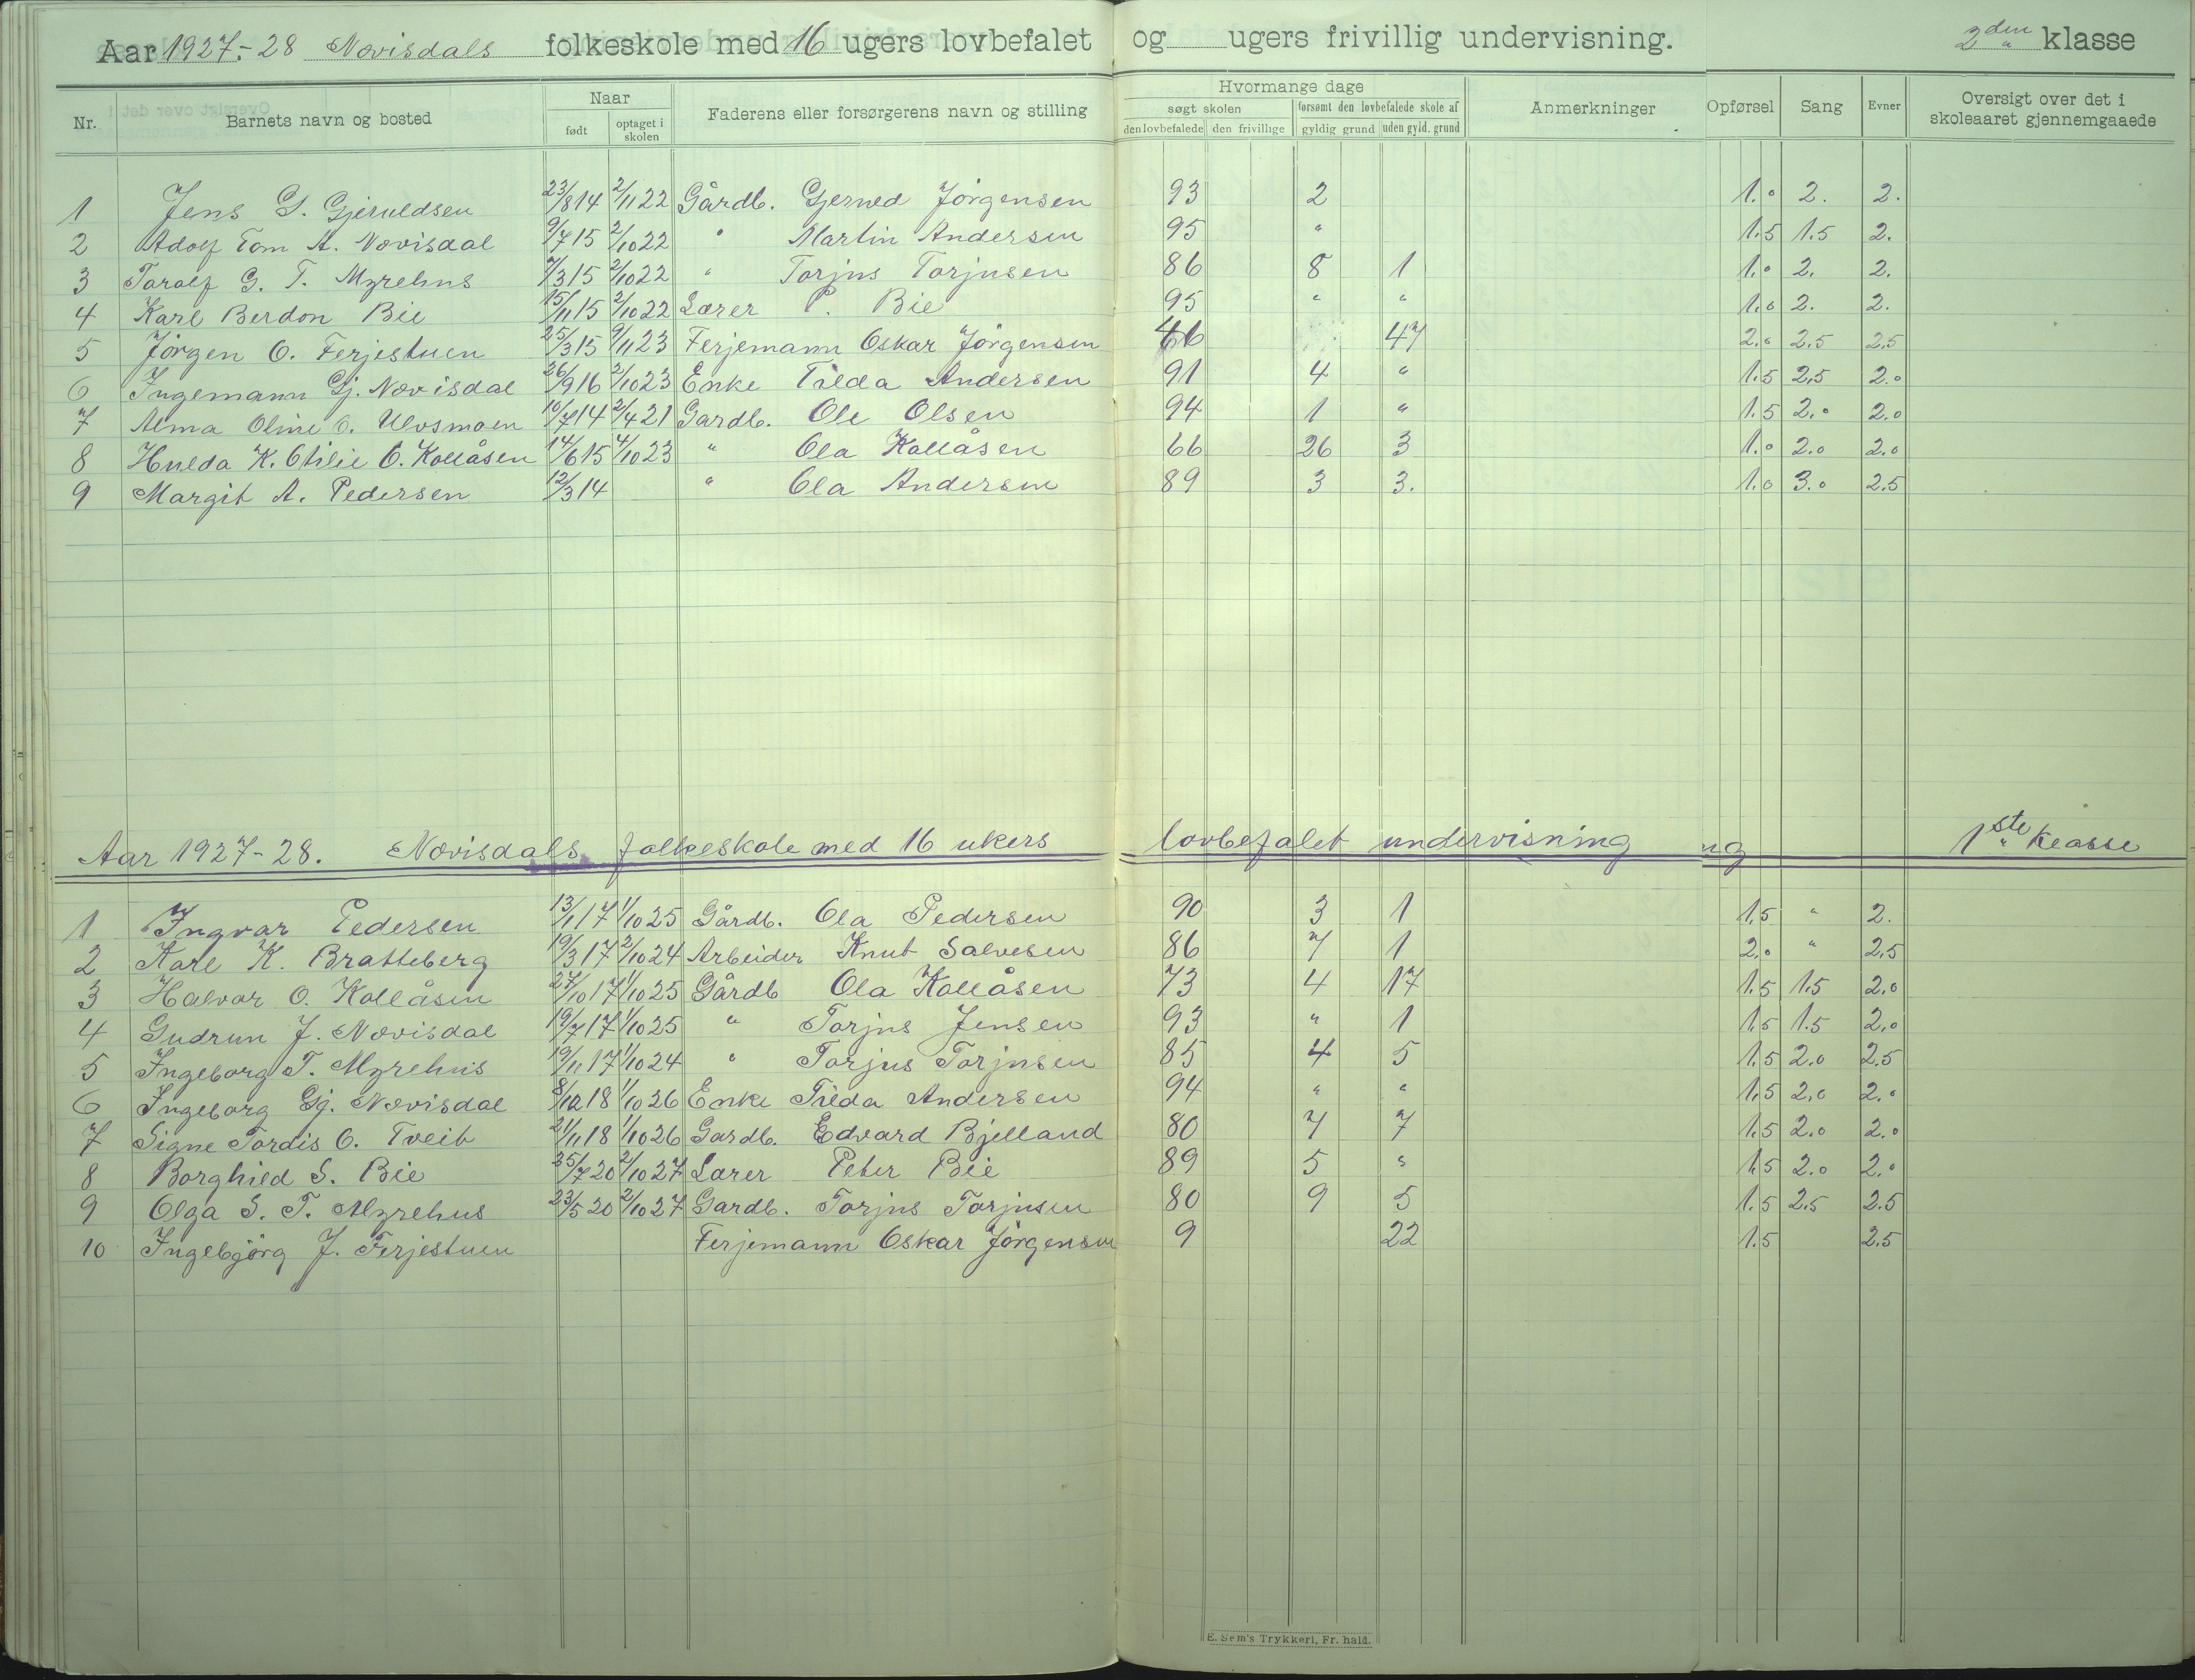 Aar 1927.-28 Novisdals folkeskole med 16 ugers lovbefalet og ugers frivillig undervisning. 2den klasse
Nr. Barnets navn og bosted Naar født optaget i skolen Faderens eller forsørgerens navn og stilling Hvormange dage søgt skolen den lovbefalede den frivillige forsømt den lovbefalede skole af gyldig grund uden gyld. grund Anmerkninger Opførsel Sang Evner Oversigt over det i skoleaaret gjennemgaaede
1 Jens G. Gjeruldsen 23/8 14 2/11 22 Gårdb. Gjerued Jörgensen 93 2 1.0 2. 2.
2 Adolf Tom A. Novisdal 9/7 15 2/10 22 " Martin Andersen 95 " 1.5 1.5 2.
3 Torolf G. T. Myrehus 7/3 15 2/10 22 " Torjus Torjusen 86 8 1 1.0 2. 2.
4 Karl Berdon Bie 15/11 15 2/10 22 Lærer P. Bie 95 " " 1.0 2. 2.
5 Jörgen O. Ferjestuen 25/3 15 9/11 23 Ferjemann Oskar Jörgensen 46 47 2.0 2.5 2.5
6 Ingemann Gj. Novisdal 26/9 16 2/10 23 Enke Tilda Andersen 91 4 " 1.5 2.5 2.0
7 Alma Oline O. Ulvsmoen 10/7 14 2/4 21 Gardb. Ole Olsen 94 1 " 1.5 2.0 2.0
8 Hulda K. Otilie O. Kollåsen 14/6 15 4/10 23 " Ola Kollåsen 66 26 3 1.0 2.0 2.0
9 Margit A. Pedersen 12/3 14 " Ola Andersen 89 3 3. 1.0 3.0 2.5
Aar 1927-28. Novisdals folkeskole med 16 ukers lovbefalet undervisning ng 1ste Klasse
1 Ingvar Pedersen 13/1 17 1/10 25 Gårdb. Ola Pedersen 90 3 1 1.5 " 2.
2 Karl K. Bratteberg 19/3 17 2/10 24 Arbeider Knut Salvesen 86 7 1 2.0 " 2.5
3 Halvor O. Kollåsen 27/10 17 1/10 25 Gårdb Ola Kollåsen 73 4 17 1.5 1.5 2.0
4 Gudrun J. Novisdal 19/7 17 1/10 25 " Torjus Jensen 93 " 1 1.5 1.5 2.0
5 Ingeborg T. Myrehus 19/11 17 1/10 24 " Torjus Torjusen 85 4 5 1.5 2.0 2.5
6 Ingeborg Gj. Novisdal 8/12 18 1/10 26 Enke Tilda Andersen 94 " " 1.5 2.0 2.0
7 Signe Tordis O. Tveit 21/11 18 1/10 26 Gardb. Edvard Bjelland 80 7 7 1.5 2.0 2.0
8 Borghild S. Bie 25/7 20 2/10 27 Lærer Peter Bie 89 5 " 1.5 2.0 2.0
9 Olga S. T. Myrehus 23/5 20 2/10 27 Gardb. Torjus Torjusen 80 9 5 1.5 2.5 2.5
10 Ingebjörg J. Ferjestuen Ferjemann Oskar Jörgensen 9 22 1.5 2.5
E. Sem's Trykkeri, Fr. hald.